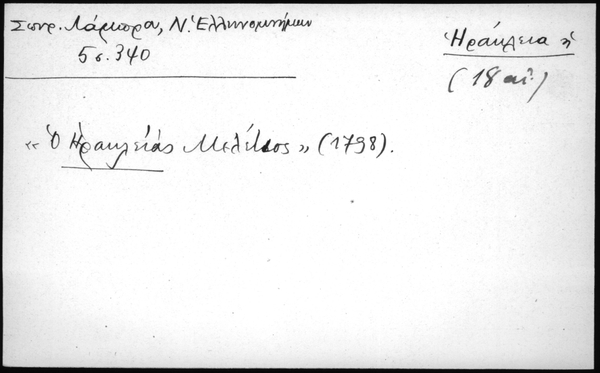 Σπυρ. Λάμπρα, Ν. Ἑλληνομνήμων
5 σ. 340
Ἡράκλεια ἡ
(18 αἰ.)
« Ὁ Ἡρακλείας Μελέτιος » (1798).